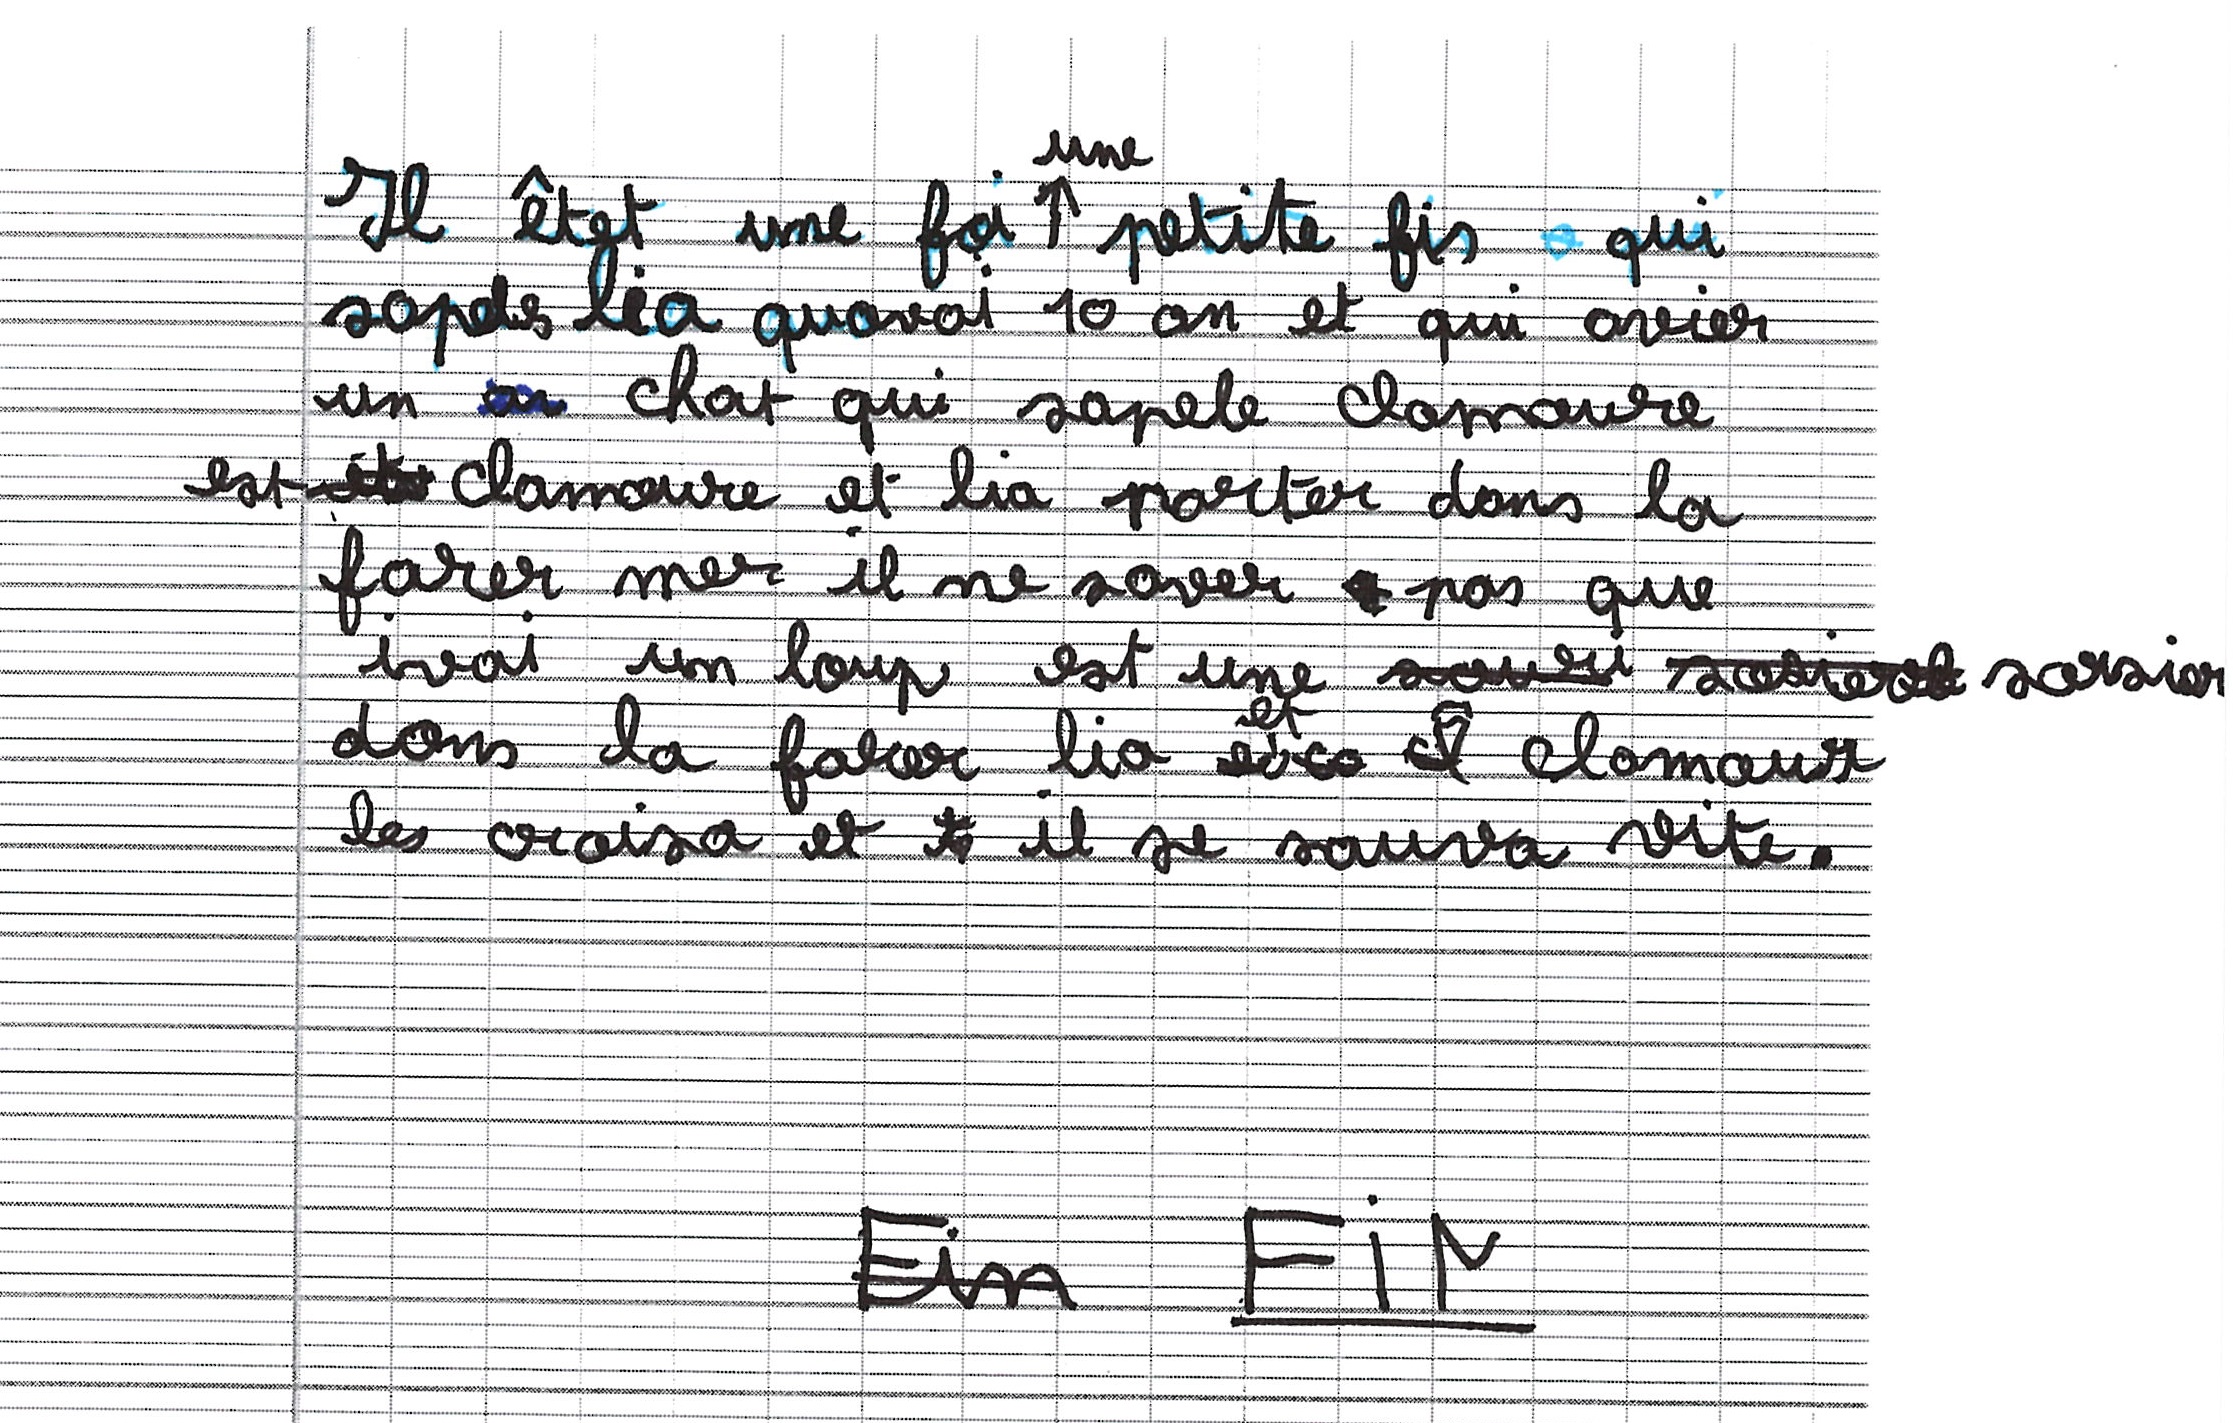 Il êtet une foi une petite fis qui
sapels lia quavai 10 an et qui avier
un chat qui sapele clamoure
est clamoure et lia porter dans la
farer mer il ne saver pas que
ivai un loup est une souri sorsier
dans la farer lia et clamour
les croisa et il se sauva vite.
Fin FiN